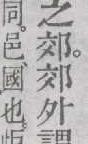 之郊。郊外謂
同。邑國也。